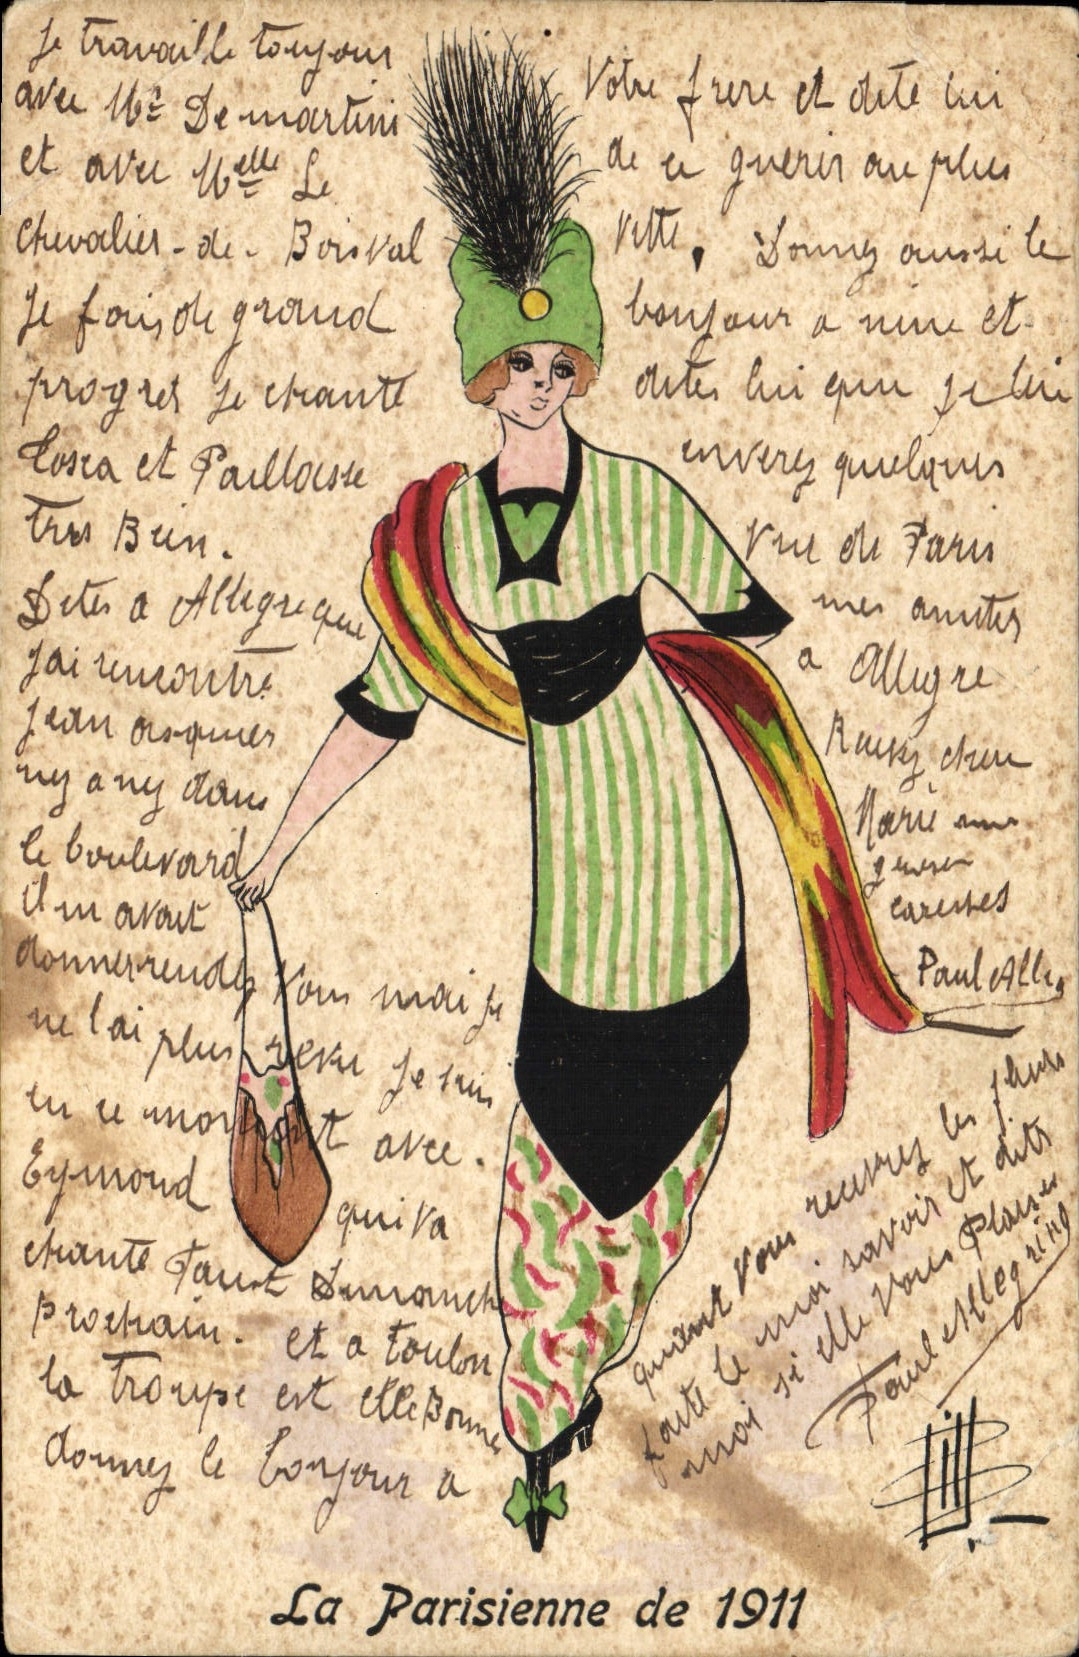 Je travaille toujours
avec Mr Demartini
et avec Melle Le
Chevalier-de-Boisval
Je fais de grand
progres Je chante
Tosca et Paillasse
tres Bien.
Dites a Allegre que
j'ai rencontré
Jean asquier
ny a ny dans
le boulevard
il m avait
donner rendez Vous mai je
ne l'ai plus revu Je suis
en ce moment avec.
Eymond qui va
chanté Faust Dimanche
Prochain. et a Toulon
la Troupe est elle Bonne
donnez le Bonjour a
Votre frere et dite lui
de ce guerir au plus
vitte, Donnez aussi le
bonjour a nine et
dites lui que je lui
enverez quelques
Vue de Paris
mes amities
a Allegre
Recevez chere
Marie mes
caresses
Paul Alleg
quant Vous recevrez les fleurs
faite le moi savoir et dits
moi si elle vous Plaises
Paul Allegrini
La Parisienne de 1911